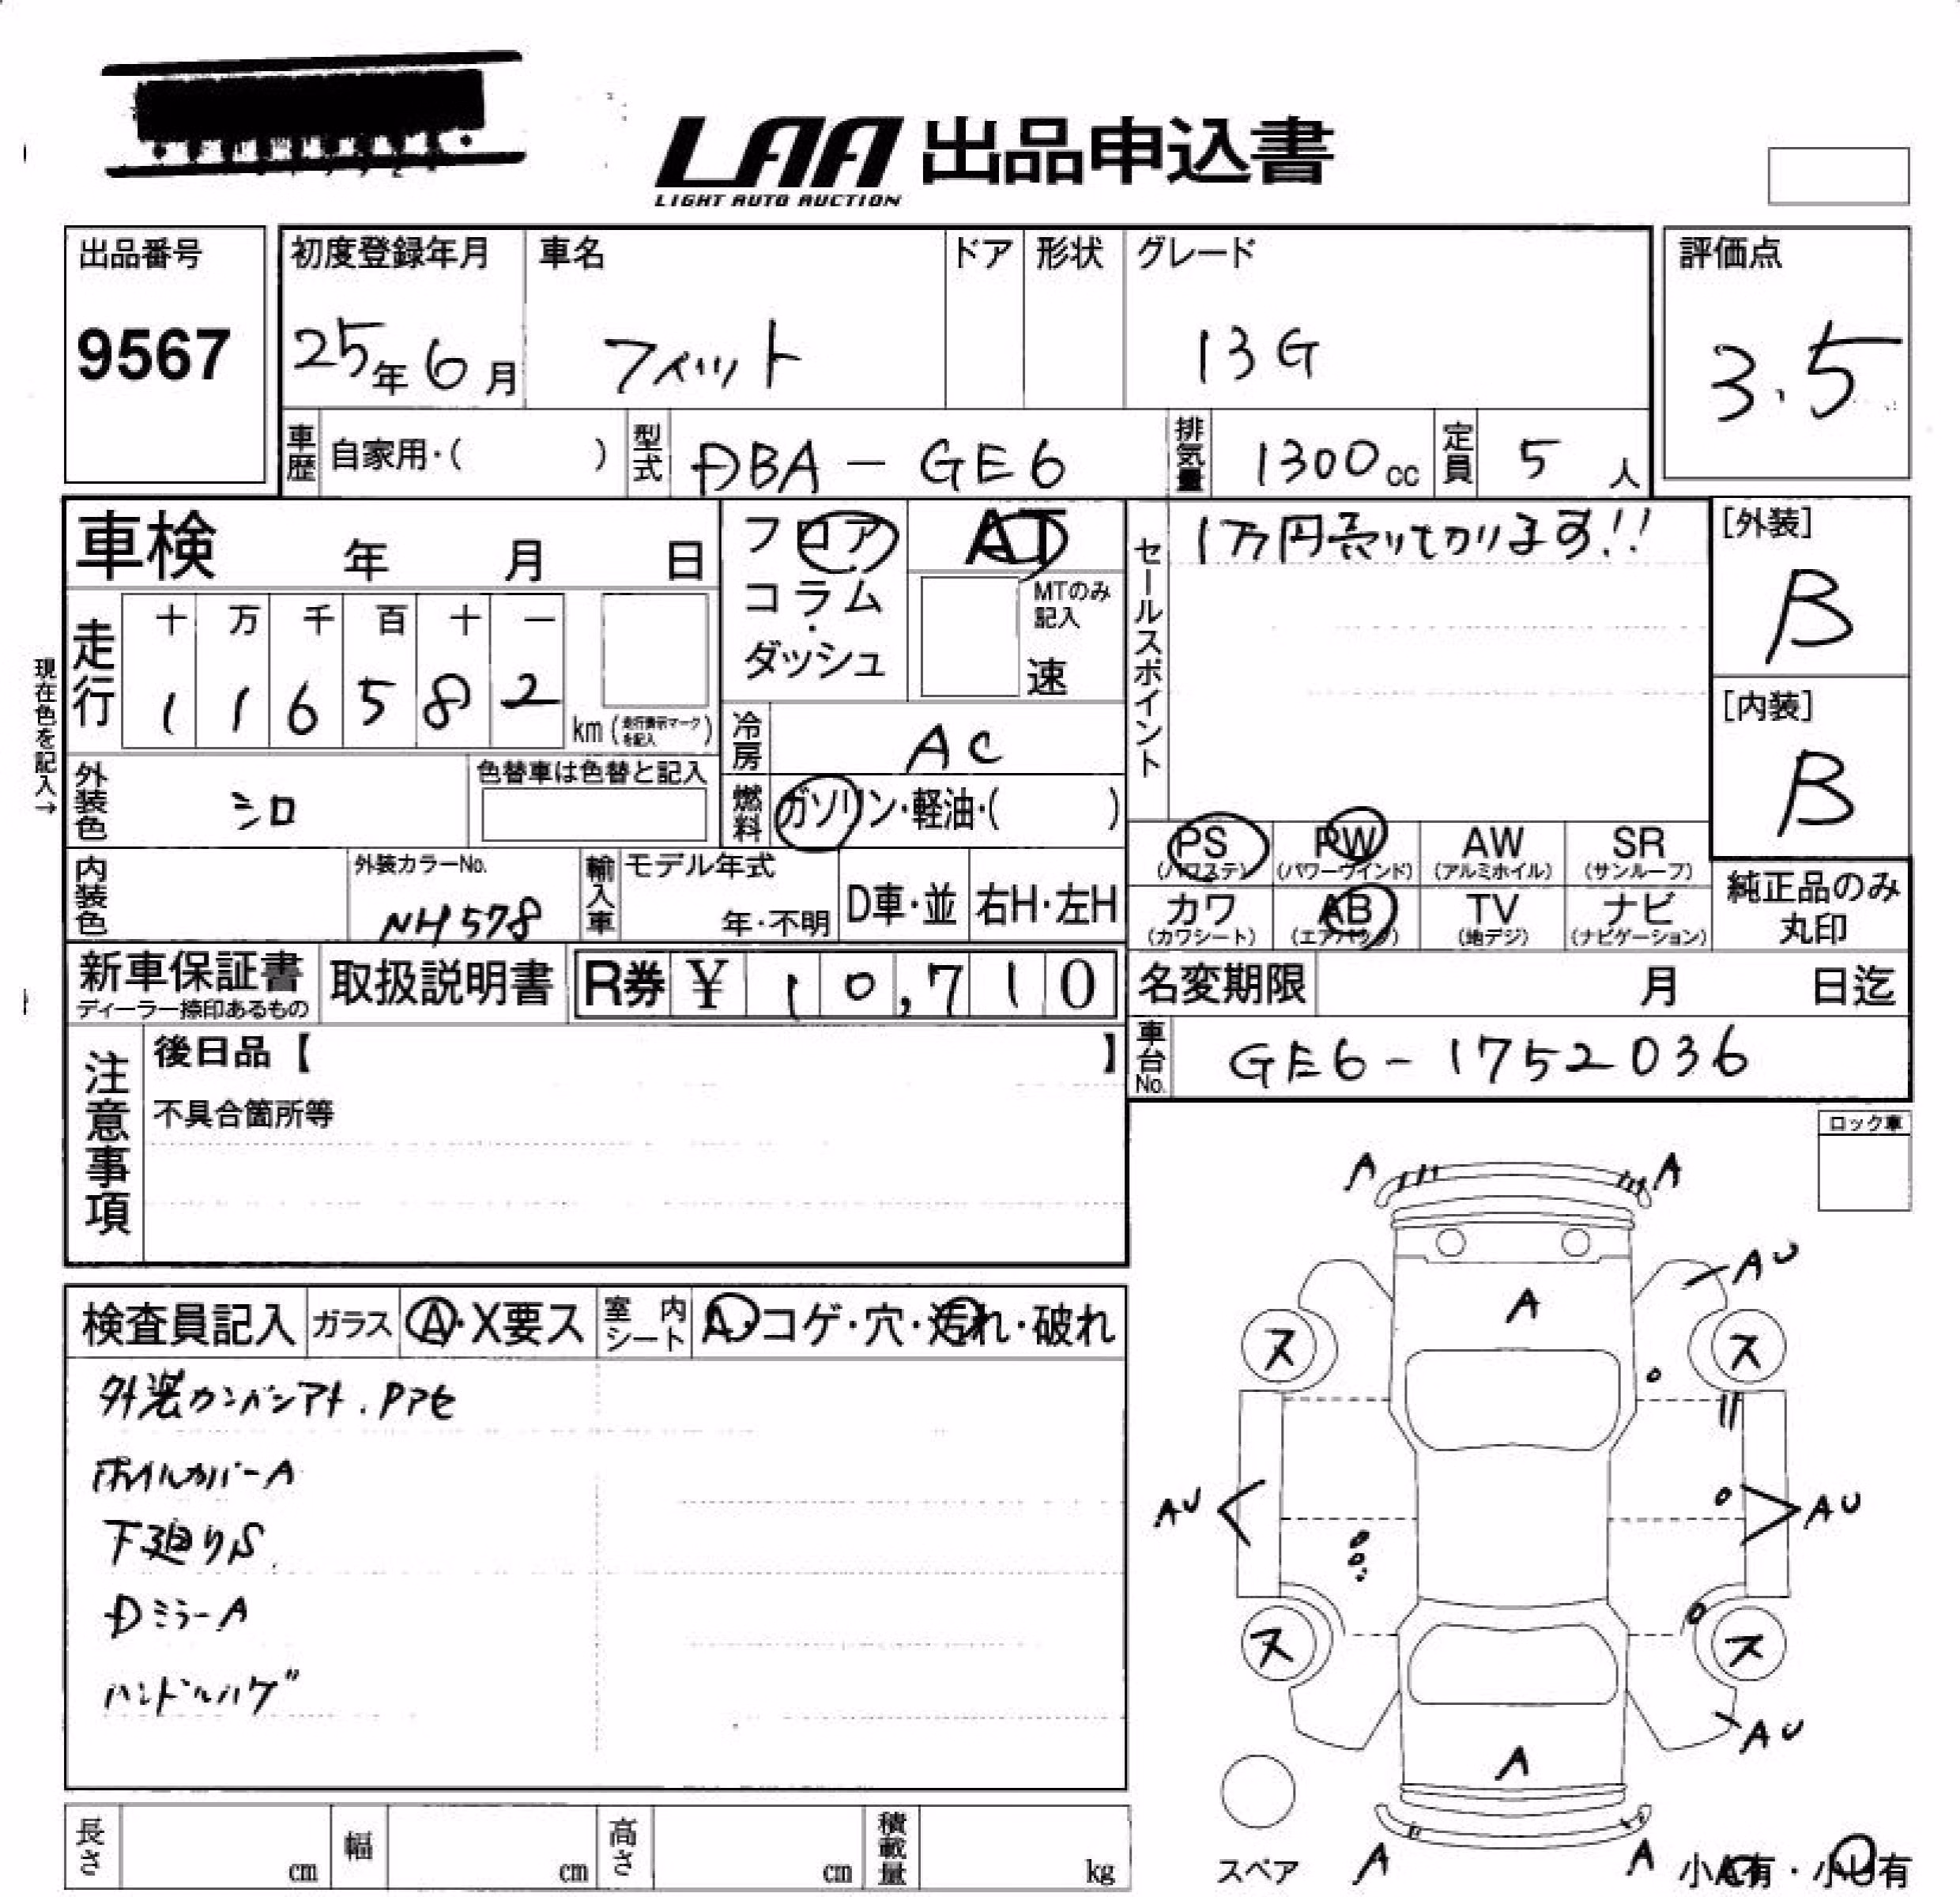 LAA 出品申込書
LIGHT AUTO AUCTION
出品番号
9567
初度登録年月
25年6月
車名
フィット
ドア
形状
グレード
13G
評価点
3.5
車歴
自家用・( )
型式
DBA-GE6
排気量
1300cc
定員
5人
車検 年 月 日
フロア
コラム
・
ダッシュ
AT
MTのみ
記入
速
セールスポイント
1万円売り切ります!!
[外装]
B
[内装]
B
現在色を記入→
走行
十 万 千 百 十 一
1 1 6 5 8 2
km(走行表示マークを記入)
冷房
AC
外装色
シロ
色替車は色替と記入
燃料
ガソリン・軽油・( )
内装色
外装カラーNo.
NH578
輸入車
モデル年式
年・不明
D車・並
右H・左H
PS
(パワステ)
PW
(パワーウインド)
AW
(アルミホイル)
SR
(サンルーフ)
カワ
(カワシート)
AB
(エアバック)
TV
(地デジ)
ナビ
(ナビゲーション)
純正品のみ
丸印
新車保証書
ディーラー捺印あるもの
取扱説明書
R券 ¥ 10,710
名変期限 月 日迄
車台No.
GE6-1752036
注意事項
後日品【 】
不具合箇所等
ロック車
検査員記入
ガラス
A・X要ス
室内シート
A・コゲ・穴・汚れ・破れ
外装カンバンアト.
ホイルカバーA
下廻りS
Dミラー A
ハンドルハゲ
A A
AU
A
ス ス
AU AU
ス ス
AU
A
スペア
A A
小A有・小U有
長さ cm
幅 cm
高さ cm
積載量 kg